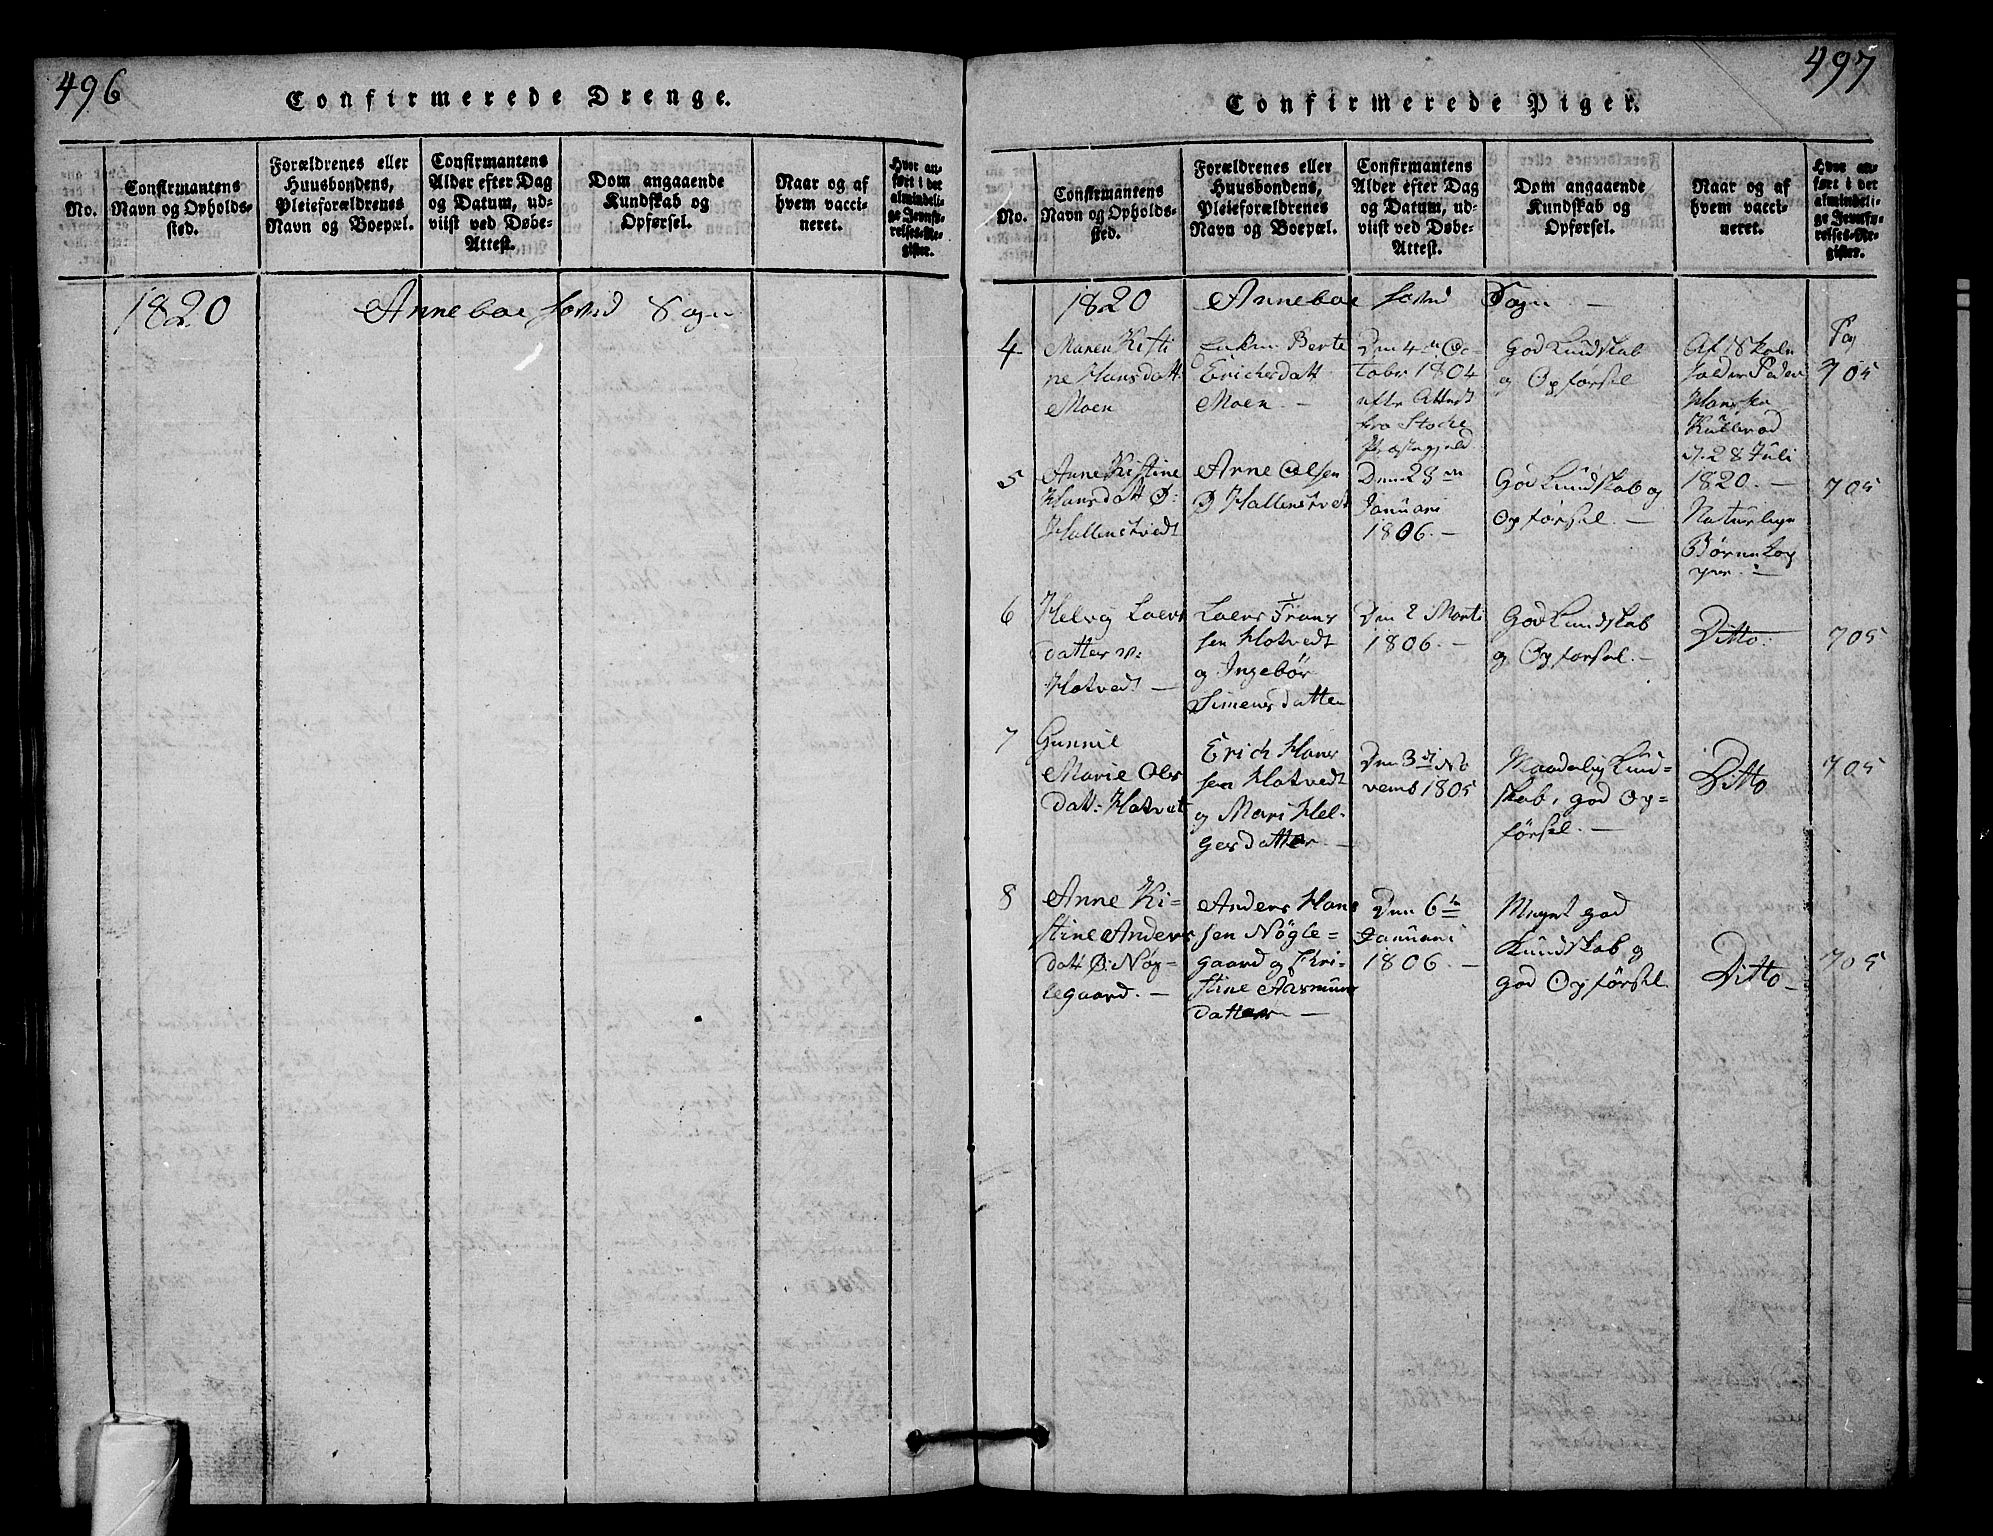 496
Confirmerede Drenge.
No.
Confirmantens
Navn og Opholds-
sted.
Forældrenes eller
Huusbondens,
Pleieforældrenes
Navn og Boepæl.
Confirmantens
Alder efter Dag
og Datum, ud-
viist ved Døbe-
Attest.
Dom angaaende
Kundskab og
Opførsel.
Naar og af
hvem vacci-
neret.
Hvor an-
ført i det
almindeli-
ge Jevnfø-
relses-Re-
gister.
1820
Anneboe Sogn
497
Confirmerede Piger.
No.
Confirmantens
Navn og Opholds-
sted.
Forældrenes eller
Huusbondens,
Pleieforældrenes
Navn og Boepæl.
Confirmantens
Alder efter Dag
og Datum, ud-
viist ved Døbe-
Attest.
Dom angaaende
Kundskab og
Opførsel.
Naar og af
hvem vacci-
neret.
Hvor an-
ført i det
almindeli-
ge Jevnfø-
relses-Re-
gister.
1820 Anneboe Sogn
4
Maren Kisti
ne Hansdatt
Moen
Enken Berte
Erichsdatt
Moen.
Den 4de Oc-
tobr 1804
efter Attest
fra Stocke
Præstegjeld
God Kundskab
og Opførsel
Af Skole
holder Peder
Hansen
28 Juli
1820. –
Pag
705
5
Anne Kistine
Hansdatt Ø:
Hallenstvedt
Arne Olsen
Ø Hallenstvedt
Den 28de
Januari
1806. –
God Kundskab og
Opførsel. –
Naturlige
Børne Kop
per. –
705
6
Helvig Laers
datter v:
Hotvedt –
Laers Frans
sen Hotvedt
og Ingebor
Simensdatter
Den 2 Marti
1806. –
God Kundskab
og Opførsel. –
Ditto.
705
7
Gunnil
Marie Ols
dat: Hotvet
Erich Hans
sen Hotvedt
og Mari Hel-
gesdatter. –
Den 3di No
vemb 1805
Maadelig Kund-
skab, god Op-
førsel. –
Ditto
705
8
Anne Ki-
stine Anders
datt Ø: Nøg-
legaard. –
Anders Hans
sen Nøgle-
gaard og Kri-
stine Aasmuns
datter –
Den 6te
Januari
1806. –
Meget god
Kundskab og
god Opførsel
Ditto –
705